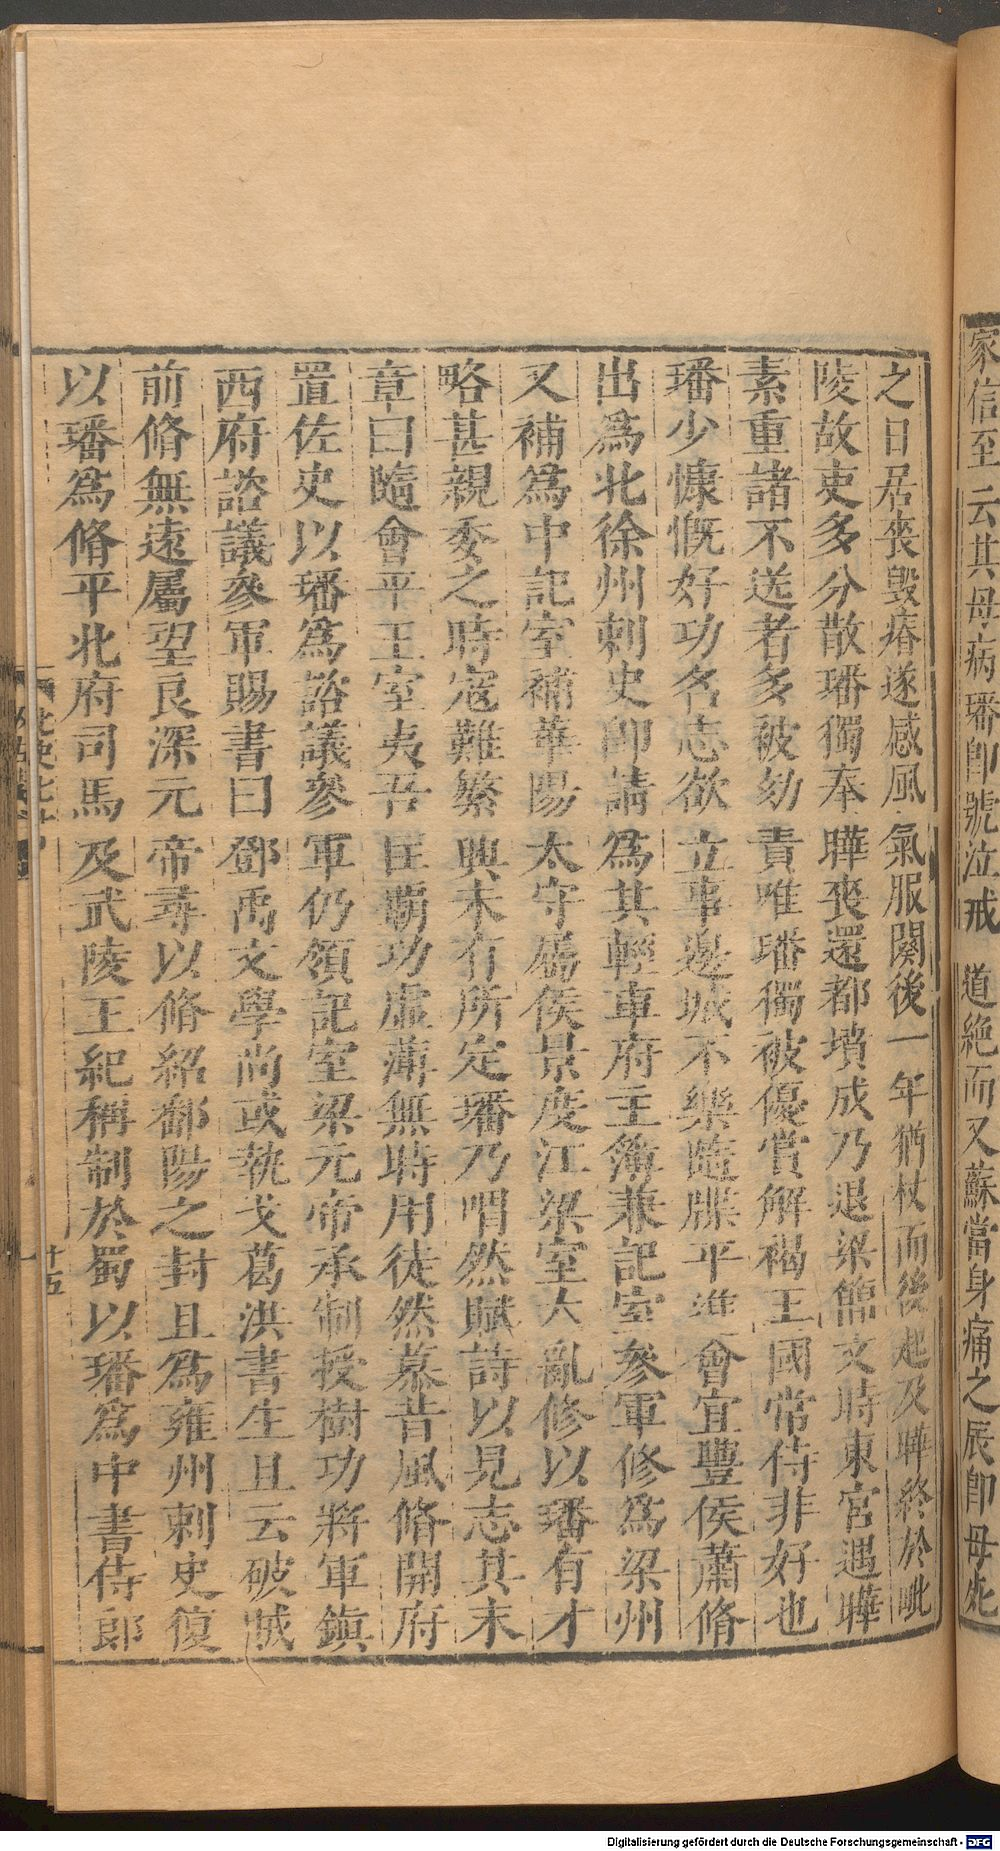 家信至云其母病璠卽號泣戒道絶而又蘇當身痛之辰卽母死
之日居喪毀瘠遂感風氣服闋後一年猶杖而後起及曄終於毗
陵故吏多分散璠獨奉曄喪還都墳成乃退梁簡文時東宮遇曄
素重諸不送者多被劾責唯璠獨被優賞解褐王國常侍非好也
璠少慷慨好功名志欲立事邊城不樂隨牒平進會宜豐侯蕭脩
出爲北徐州刺史卽請爲其輕車府主簿兼記室參軍修爲梁州
又補爲中記室補華陽太守屬侯景度江梁室大亂修以璠有才
略甚親委之時寇難繁興未有所定璠乃喟然賦詩以見志其末
章曰隨會平王室夷吾匡霸功虛薄無時用徒然慕昔風脩開府
置佐史以璠爲諮議參軍仍領記室梁元帝承制授樹功將軍鎭
西府諮議參軍賜書曰鄧禹文學尚或執戈葛洪書生且云破賊
前脩無遠屬望良深元帝尋以脩紹鄱陽之封且爲雍州刺史復
以璠爲脩平北府司馬及武陵王紀稱制於蜀以璠爲中書侍郎
十五
Digitalisierung gefördert durch die Deutsche Forschungsgemeinschaft - DFG